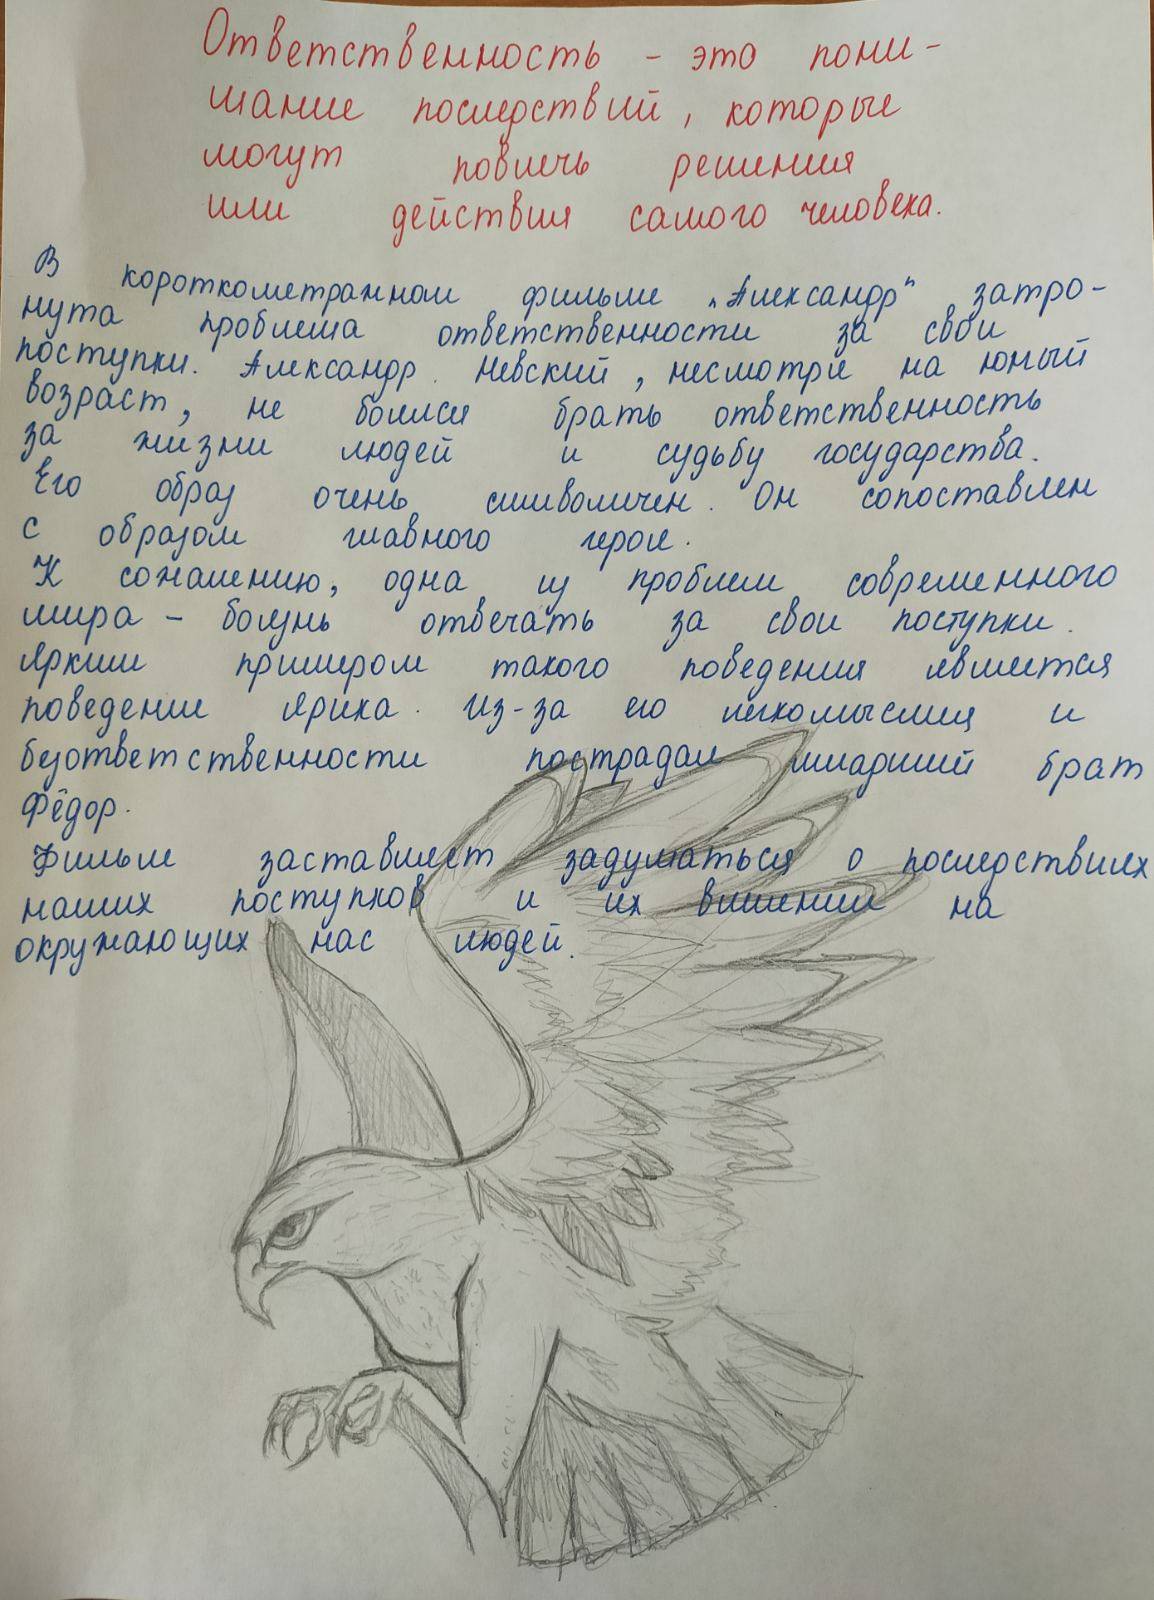 Ответственность - это пони-
мание последствий, которые
могут повлечь решения
или действия самого человека.
В короткометражном фильме „Александр" затро-
нута проблема ответственности за свои
поступки. Александр Невский, несмотря на юный
возраст, не боялся брать ответственность
за жизни людей и судьбу государства.
Его образ очень символичен. Он сопоставлен
с образом главного героя.
К сожалению, одна из проблем современного
мира - боязнь отвечать за свои поступки.
Ярким примером такого поведения является
поведение Ярика. Из-за его легкомыслия и
безответственности пострадал младший брат
Фёдор.
Фильм заставляет задуматься о последствиях
наших поступков и их влиянии на
окружающих нас людей.